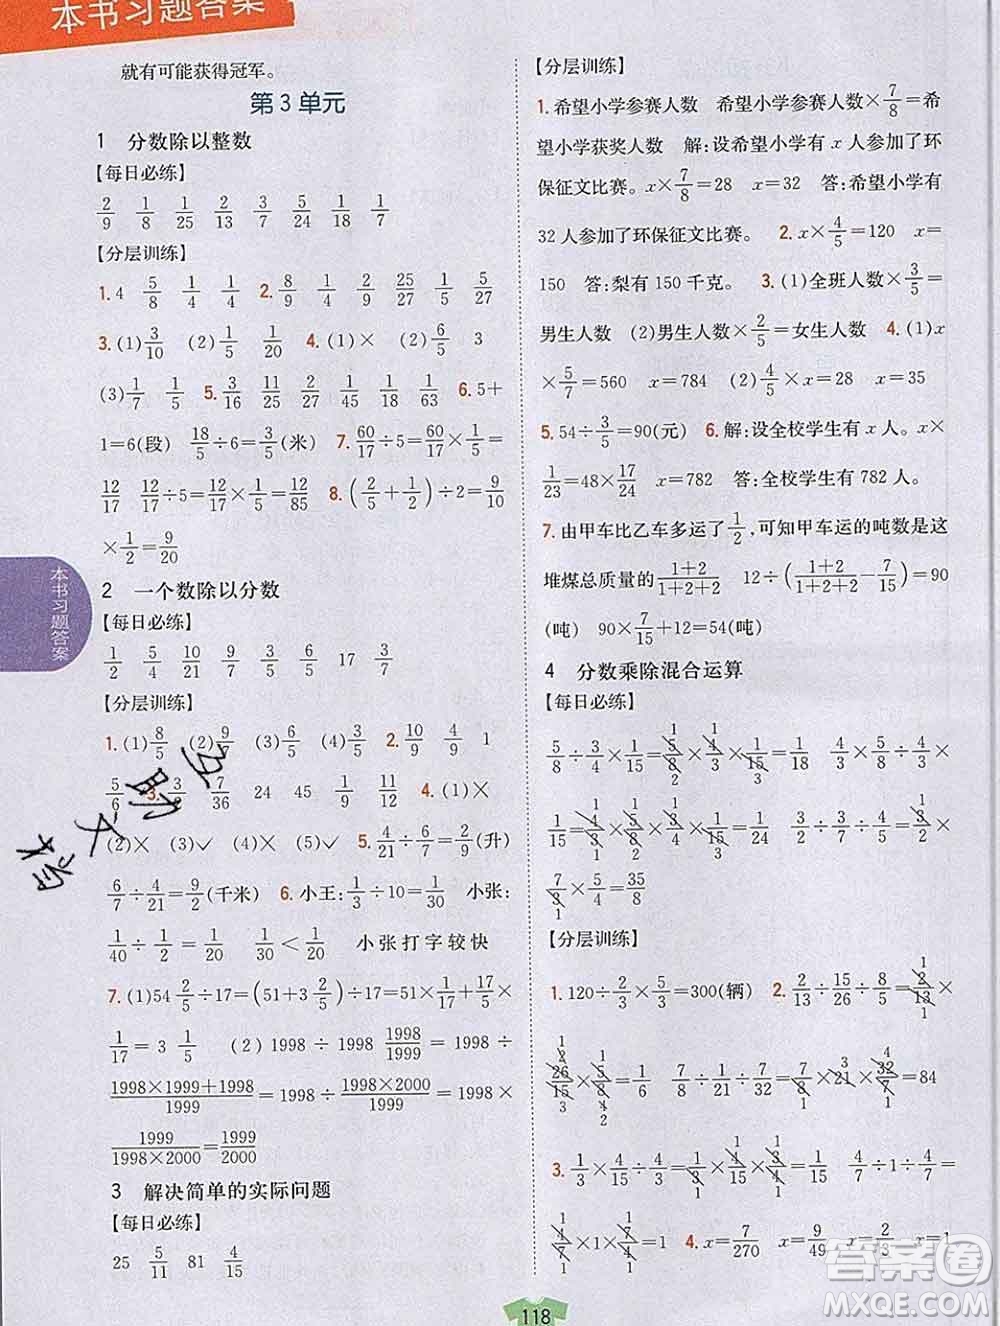 本书习题答案
就有可能获得冠军。
第 3 单元
1 分数除以整数
【每日必练】
2/9 1/8 1/25 2/13 3/7 5/24 1/18 1/7
【分层训练】
1. 4 5/8 1/4 1/4 2. 8/9 1/4 4/27 25/27 1/5 5/27
3. (1) 3/10 (2) 1/5 1/20 4. (1)× (2) 6/5 3
(3) 1/7 1/5 5. 3/16 11/25 2/25 1/45 1/8 1/63 6. 5+
1=6(段) 18/5÷6=3/5(米) 7. 60/17÷5=60/17×1/5=
12/17 12/17÷5=12/17×1/5=12/85 8. (2/5+1/2)÷2=9/10
×1/2=9/20
2 一个数除以分数
【每日必练】
1/2 5/4 10/21 9/20 1/30 6/5 17 3/8
【分层训练】
1. (1) 8/5 (2) 9/7 (3) 6/5 (4) 3/5 2. 10/9 4/9 1
5/6 3. 7/36 24 45 1/9 11/12 4. (1)×
(2)× (3)✓ (4)× (5)✓ 5. 4/21÷6/7=2/9(升)
6/7÷4/21=9/2(千米) 6. 小王：1/3÷10=1/30 小张：
1/40÷1/2=1/20 1/30<1/20 小张打字较快
7. (1)54 2/5÷17=(51+3 2/5)÷17=51×1/17+17/5×
1/17=3 1/5 (2) 1998÷1998 1998/1999=1998÷
1998×1999+1998/1999=1998÷1998×2000/1999=1998×
1999/1998×2000=1999/2000
3 解决简单的实际问题
【每日必练】
25 5/11 81 4/15
【分层训练】
1. 希望小学参赛人数 希望小学参赛人数×7/8=希
望小学获奖人数 解：设希望小学有 x 人参加了环
保征文比赛。x×7/8=28 x=32 答：希望小学有
32 人参加了环保征文比赛。 2. x×4/5=120 x=
150 答：梨有 150 千克。 3. (1)全班人数×3/5=
男生人数 (2)男生人数×2/5=女生人数 4. (1)x
×5/7=560 x=784 (2) 4/5×x=28 x=35
5. 54÷3/5=90(元) 6. 解：设全校学生有 x 人。x×
1/23=48×17/24 x=782 答：全校学生有 782 人。
7. 由甲车比乙车多运了1/2，可知甲车运的吨数是这
堆煤总质量的1+2/1+2+2 12÷(1+2/1+2+2-7/15)=90
(吨) 90×7/15+12=54(吨)
4 分数乘除混合运算
【每日必练】
5/8÷3/4×1/15=5/8×4/3×1/15=1/18 3/4×5/8÷9/2×
1/15=3/4×5/8×2/9×1/15=1/24 7/8÷4/5×3/2=
7/8×5/4=
【分层训练】
1. 120÷2/3×5/3=300(辆) 2. 2/13÷15/26÷8/5=2/13×
26/15×5/8=1/6 7/8÷1/21÷7/32=7/8×21×32/7=84
3. 1/3×4/15÷4/15=1/3×4/15×15/4= 4/7÷1÷4/7=
4/7×1×7/4=1 4. x=7/270 x=9/49 x=4/21 x=1
118
答案圈
MXQE.COM